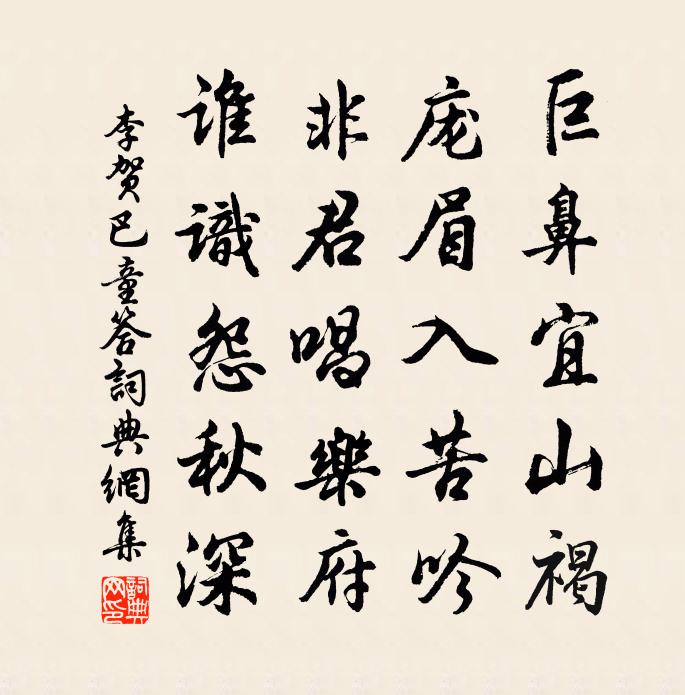 巨鼻宜山褐
庞眉入苦吟
非君唱樂府
誰識怨秋深
李贺巴童答詞典網集
詞典網印